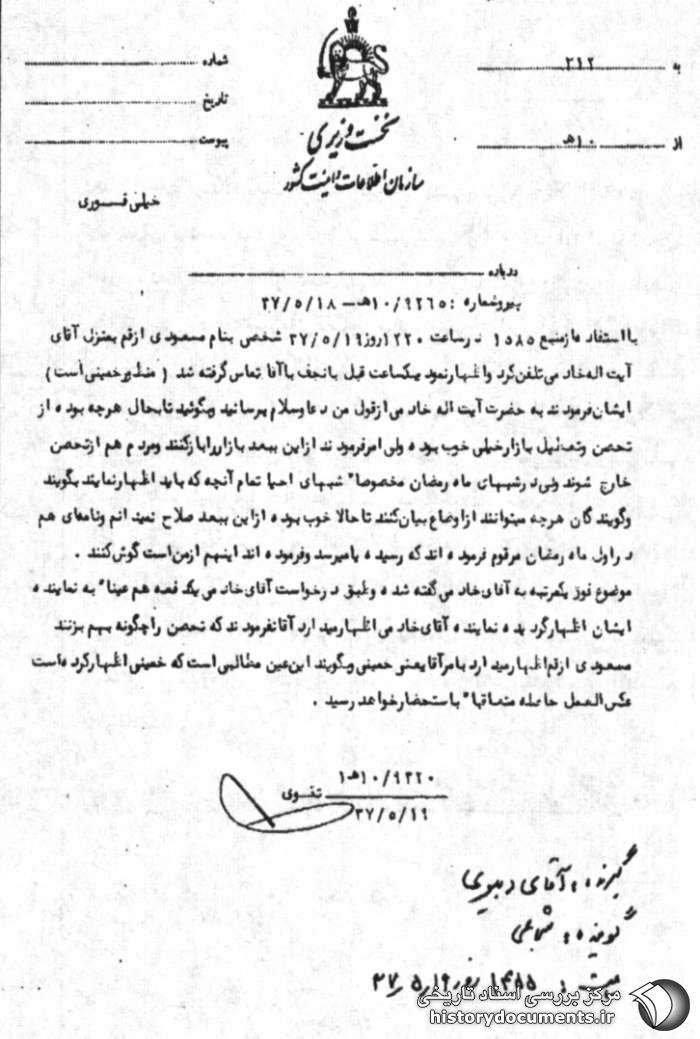 به ۲۱۲
از ۱۰ هـ
شماره
تاریخ
پیوست
نخست وزیری
سازمان اطلاعات و امنیت کشور
خیلی فوری
درباره
پیروشماره : ۱۰/۹۲۶۵هـ – ۳۷/۵/۱۸
با استفاده از منبع ۱۵۸۵ در ساعت ۱۲۲۰ روز ۳۷/۵/۱۹ شخصی بنام مسعودی از قم بمنزل آقای
آیت اله خادمی تلفن کرد و اظهار نمود یکساعت قبل با نجف با آقا تماس گرفته شد ( منظور خمینی است )
ایشان فرمودند به حضرت آیت اله خادمی از قول من دعا و سلام برسانید و بگوئید تا بحال هرچه بوده از
تحصن و تعطیل بازار خیلی خوب بوده ولی امر فرمودند از این ببعد بازار را باز کنند و مردم هم از تحصن
خارج شوند ولی در شبهای ماه رمضان مخصوصا" شبهای احیا تمام آنچه که باید اظهار نمایند بگویند
و گویندگان هرچه میتوانند از اوضاع بیان کنند تا حالا خوب بوده از این ببعد صلاح نمیدانم و نامه‌ای هم
در اول ماه رمضان مرقوم فرموده اند که رسیده یا میرسد و فرموده اند اینهم از من است گوش کنند .
موضوع فوق یکمرتبه به آقای خادمی گفته شده و طبق درخواست آقای خادمی یکدفعه هم عینا" به نماینده
ایشان اظهار گردیده نماینده آقای خادمی اظهار میدارد آقا نفرمودند که تحصن را چگونه بهم بزنند
مسعودی از قم اظهار میدارد بامر آقا یعنی خمینی و میگویند این عین مطالبی است که خمینی اظهار کرده است
عکس العمل حاصله متعاقبا" باستحضار خواهد رسید .
۱۰/۹۳۲۰هـ۱
تقوی
۳۷/۵/۱۹
گیرنده : آقای دبیری
گوینده :
ساعت : ۱۴۸۵ روز ۳۷/۵/۱۹
مرکز بررسی اسناد تاریخی
historydocuments.ir